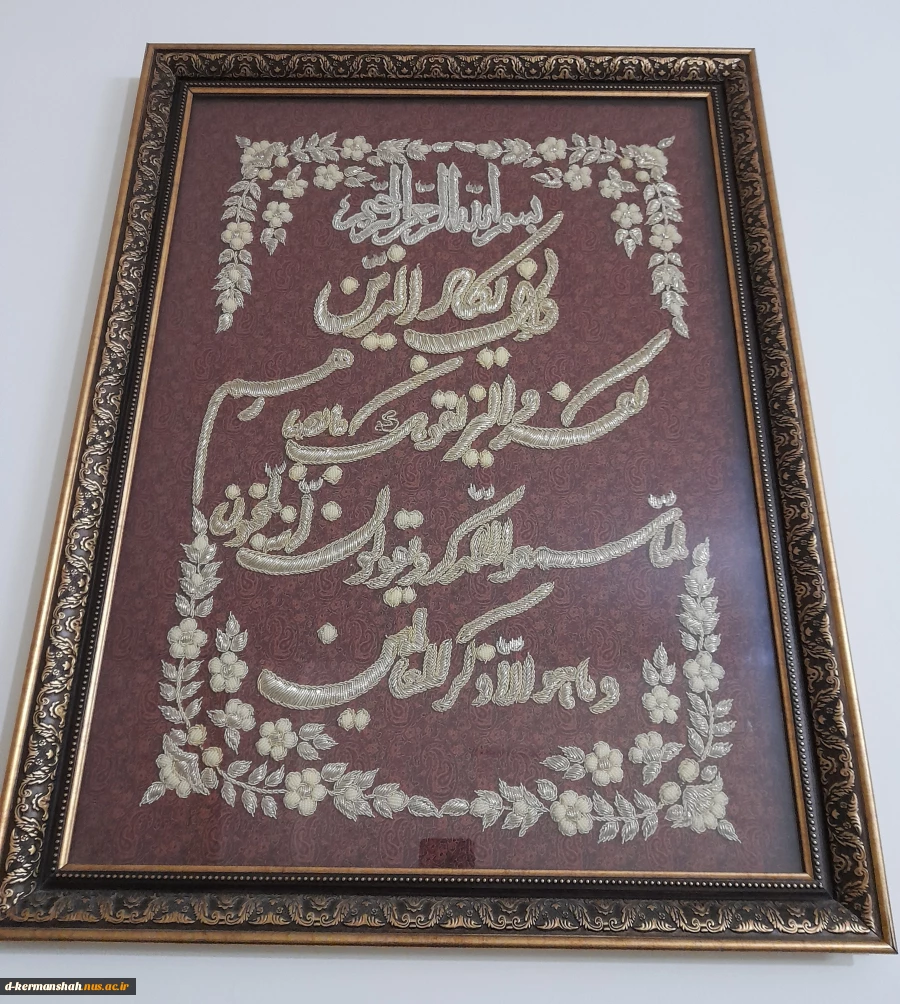 بسم الله الرحمن الرحیم
وان یکاد الذین
کفروا لیزلقونک بابصارهم
لما سمعوا الذکر و یقولون انه لمجنون
و ما هو الا ذکر للعالمین
d-kermanshah.nus.ac.ir